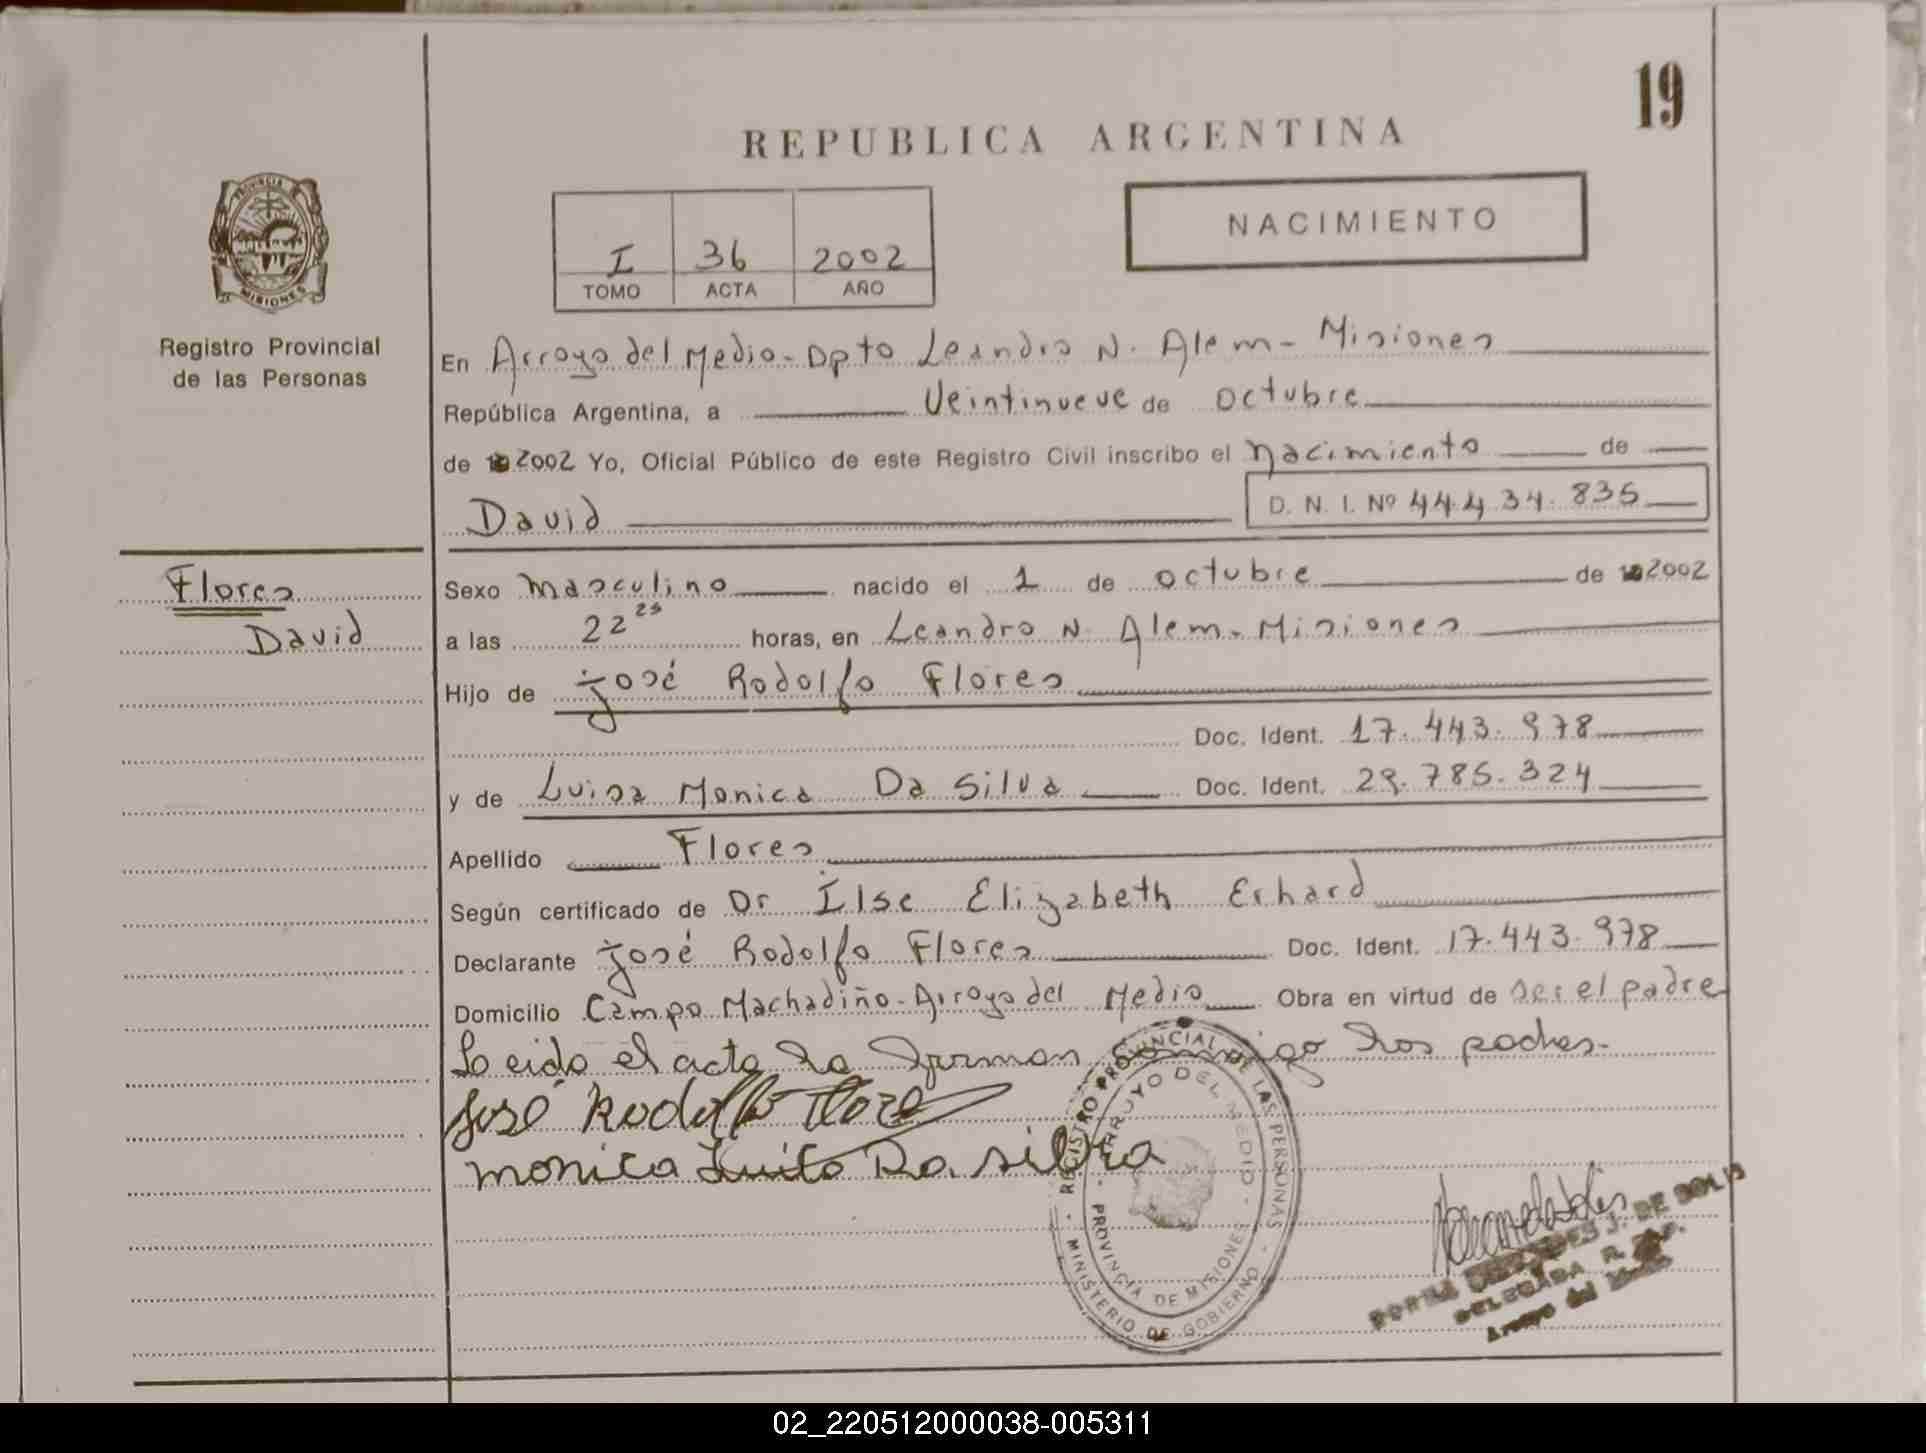 19
REPUBLICA ARGENTINA
PROVINCIA
MISIONES
I 36 2002
TOMO ACTA AÑO
NACIMIENTO
Registro Provincial
de las Personas
En Arroyo del Medio - Dpto Leandro N. Alem - Misiones
República Argentina, a Veintinueve de octubre
de 2002 Yo, Oficial Público de este Registro Civil inscribo el nacimiento de
David D. N. I. Nº 44.434.835
Flores
David
Sexo masculino nacido el 1 de octubre de 2002
a las 22 25 horas, en Leandro N. Alem - Misiones
Hijo de José Rodolfo Flores
Doc. Ident. 17.443.978
y de Luisa Monica Da Silva Doc. Ident. 29.785.324
Apellido Flores
Según certificado de Dr Ilse Elizabeth Erhard
Declarante José Rodolfo Flores Doc. Ident. 17.443.978
Domicilio Campo Machadiño - Arroyo del Medio Obra en virtud de ser el padre
el acta la firman conmigo los padres.
José Rodolfo Flores
monica Luisa Da silva
REGISTRO PROVINCIAL DE LAS PERSONAS
ARROYO DEL MEDIO
PROVINCIA DE MISIONES
MINISTERIO DE GOBIERNO
J. DE SOLIS
DELEGADA R. P. P.
Arroyo del Medio
02_220512000038-005311